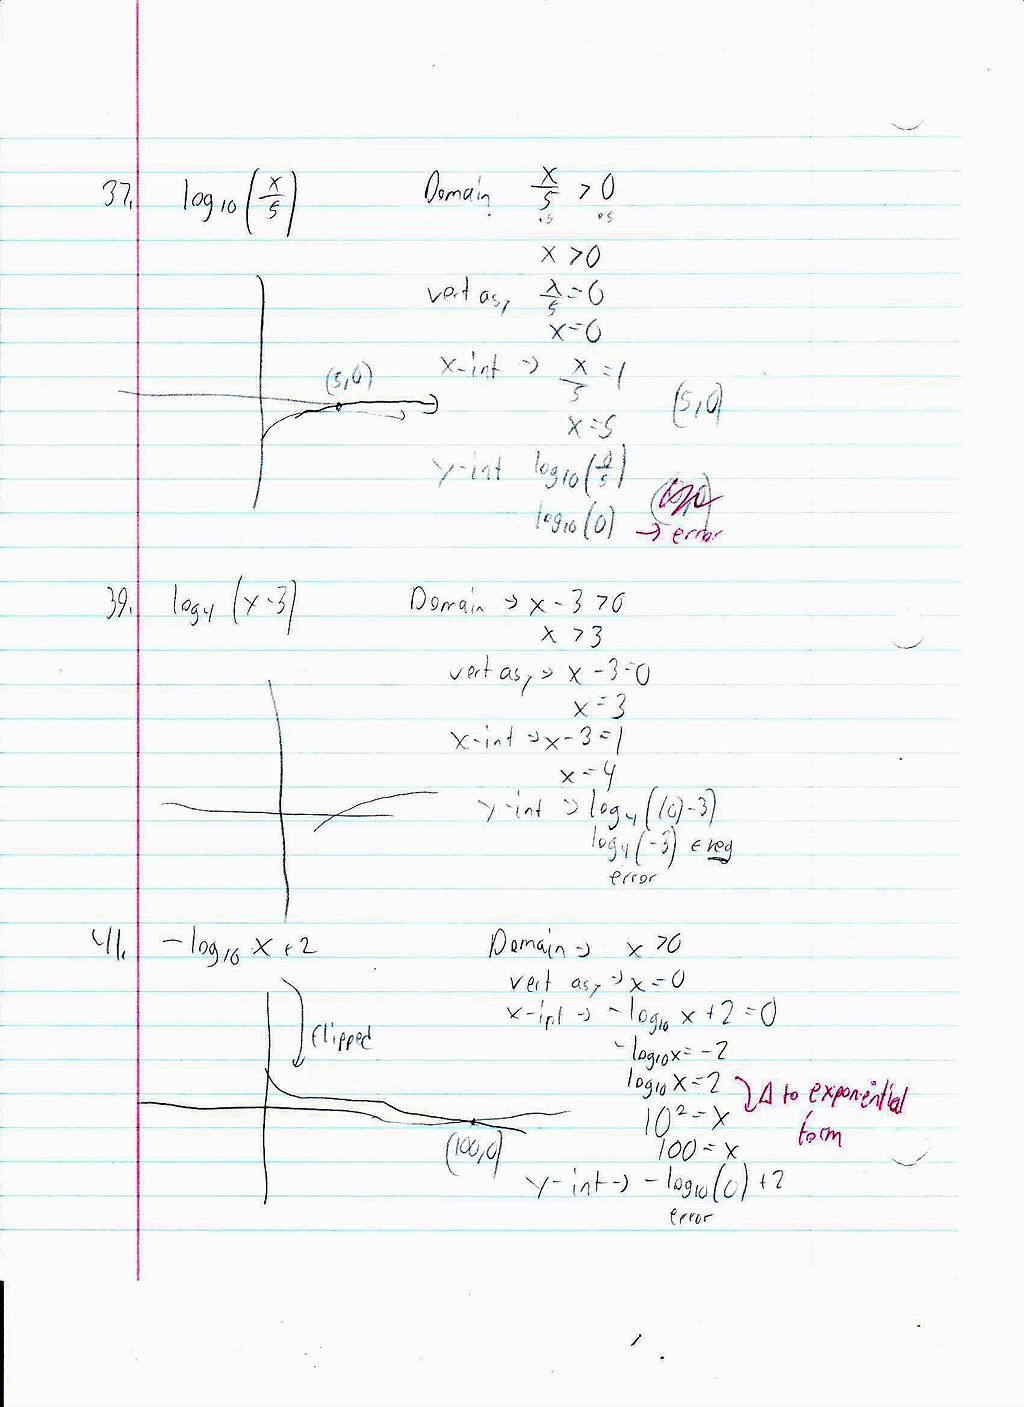 37. log₁₀(x/5) Domain x/5 > 0
·5 ·5
x > 0
vert asy x/5 = 0
x = 0
x-int → x/5 = 1
(5,0)
(5,0)
x = 5
y-int log₁₀(0/5)
log₁₀(0) → error
39. log₄(x-3) Domain → x - 3 > 0
x > 3
vert asy → x - 3 = 0
x = 3
x-int → x - 3 = 1
x = 4
y-int → log₄((0)-3)
log₄(-3) ← neg
error
41. -log₁₀ x + 2 Domain → x > 0
vert asy → x = 0
x-int → -log₁₀ x + 2 = 0
flipped
-log₁₀x = -2
log₁₀x = 2
Δ to exponential
form
10² = x
100 = x
(100,0)
y-int → -log₁₀(0) + 2
error